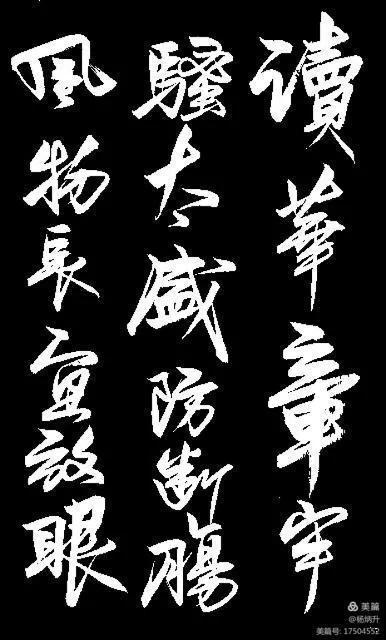 讀華章牢
騷太盛防斷腸
風物長宜放眼
美篇
@杨炳升
美篇号: 17504552